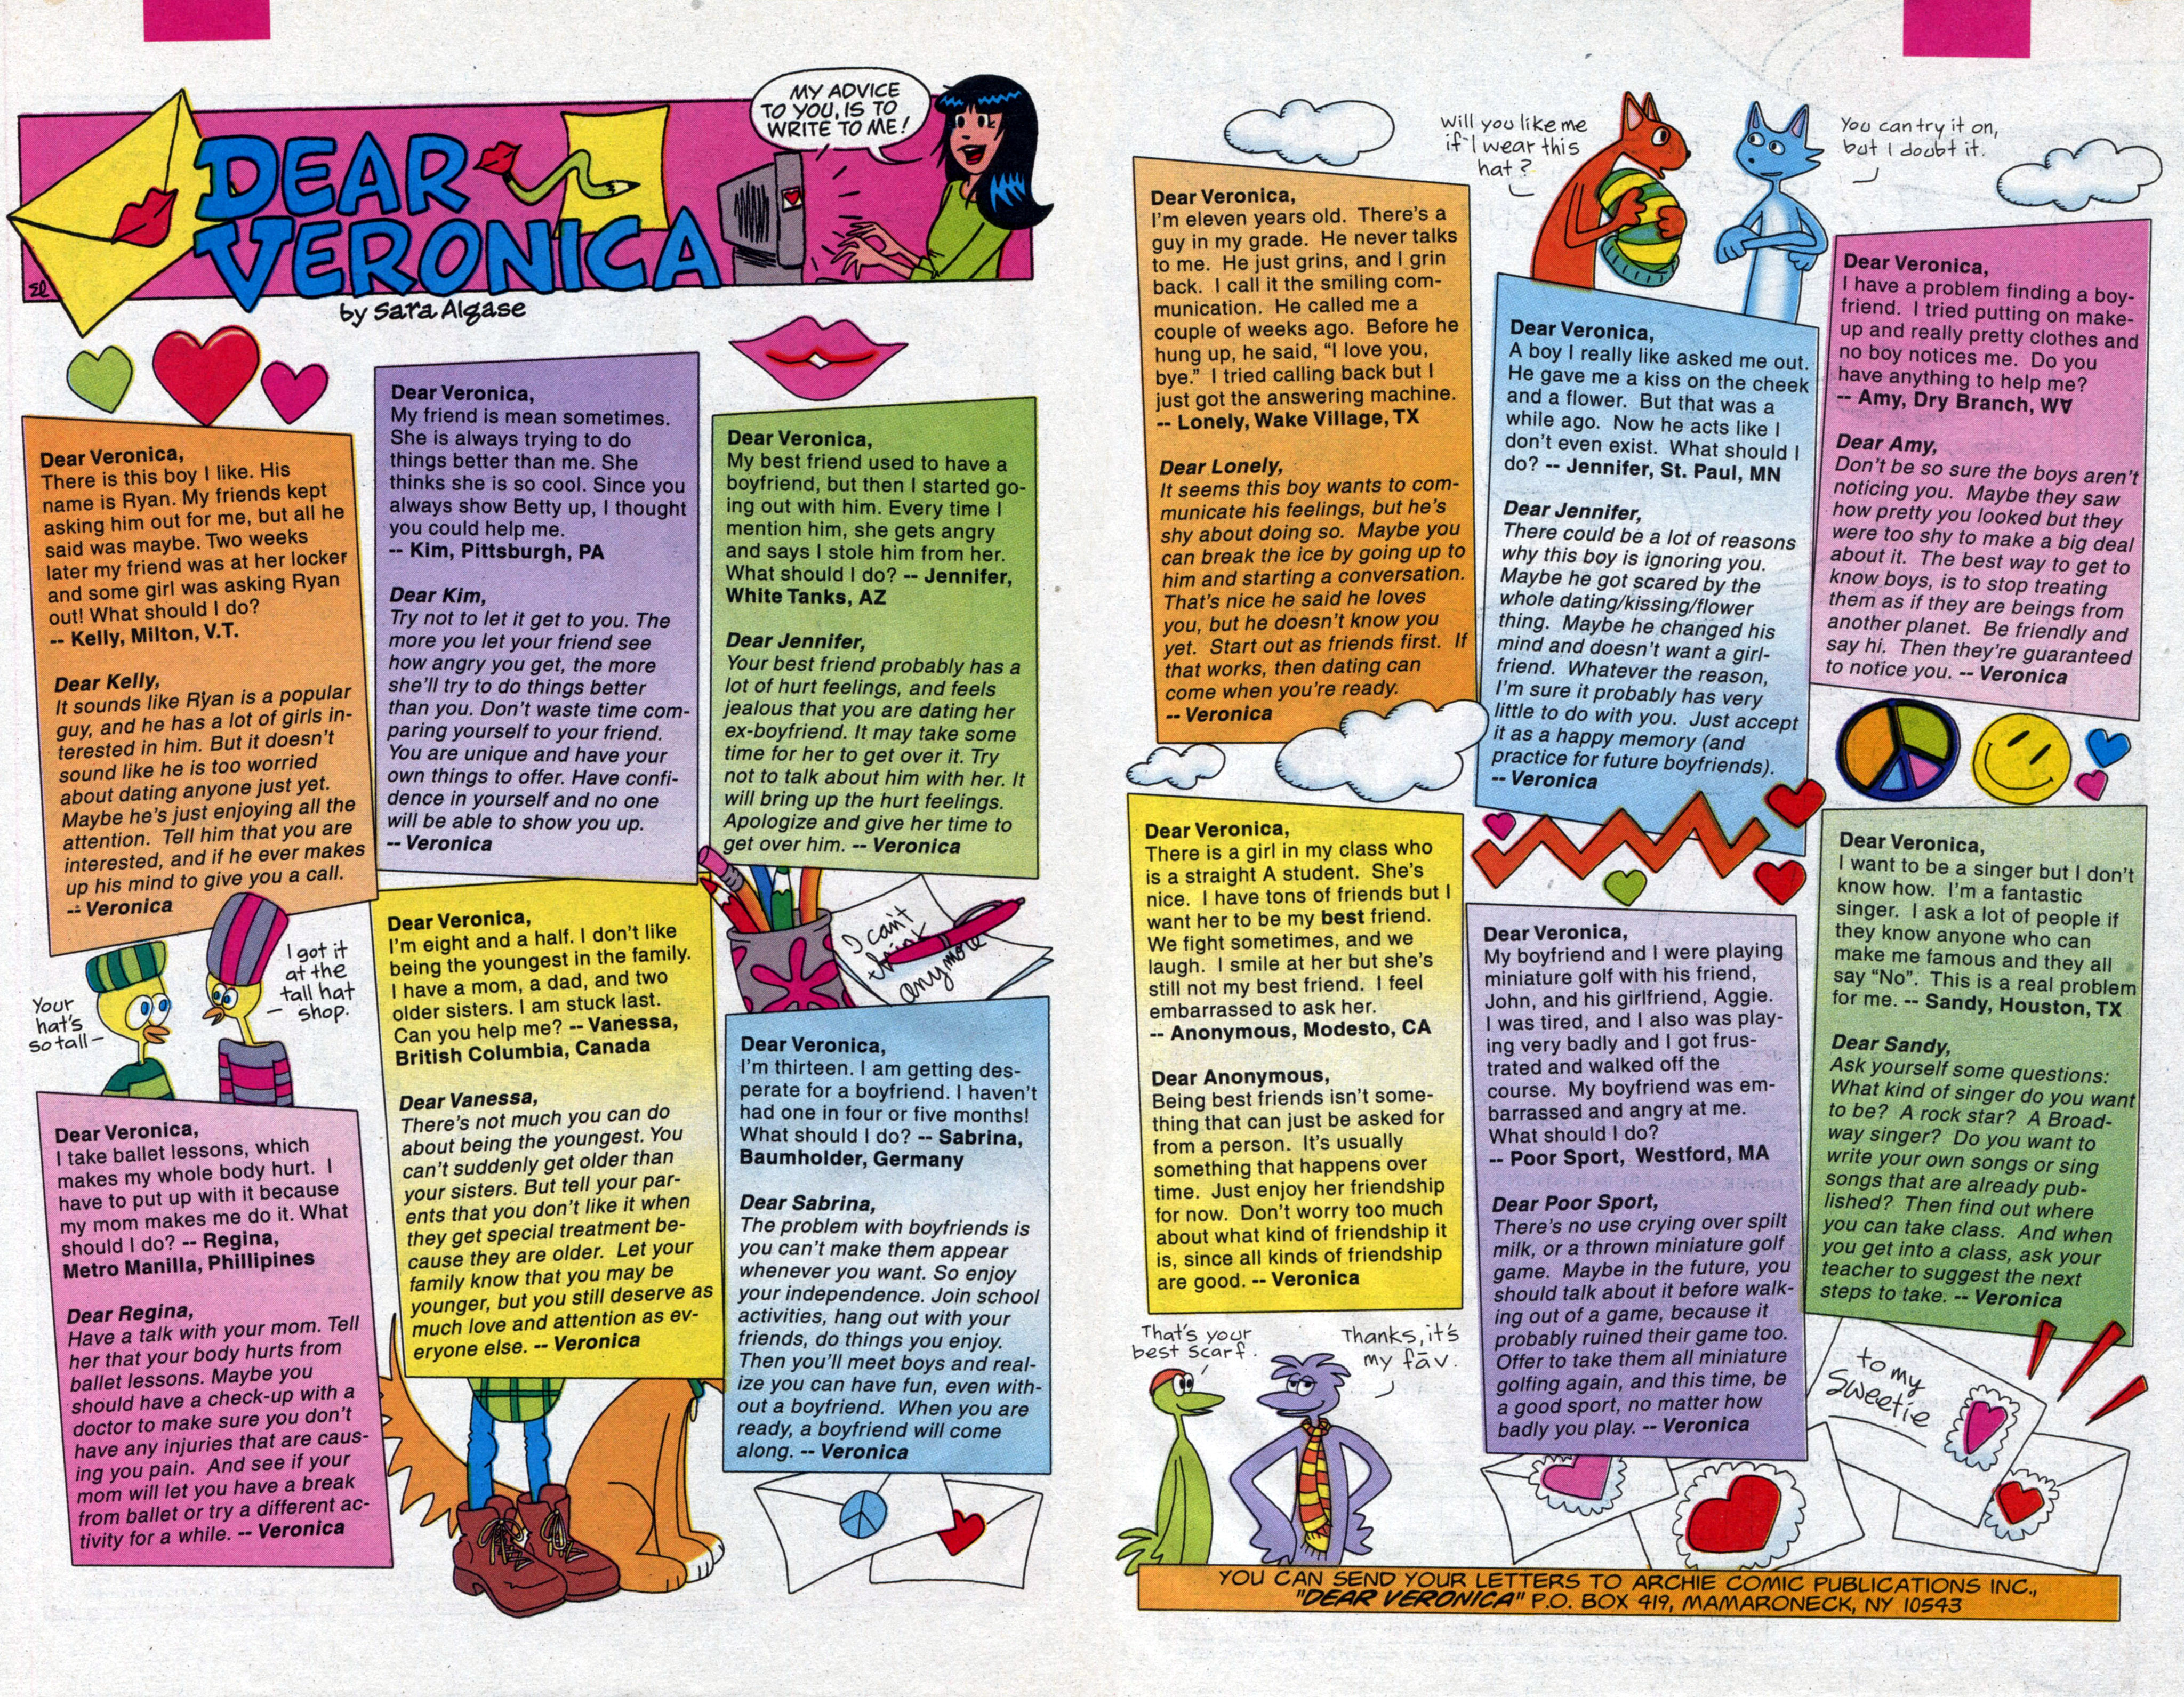 MY ADVICE
TO YOU, IS TO
WRITE TO ME!
DEAR
VERONICA
by Sara Algase
Dear Veronica,
There is this boy I like. His
name is Ryan. My friends kept
asking him out for me, but all he
said was maybe. Two weeks
later my friend was at her locker
and some girl was asking Ryan
out! What should I do?
-- Kelly, Milton, V.T.
Dear Kelly,
It sounds like Ryan is a popular
guy, and he has a lot of girls in-
terested in him. But it doesn't
sound like he is too worried
about dating anyone just yet.
Maybe he's just enjoying all the
attention. Tell him that you are
interested, and if he ever makes
up his mind to give you a call.
-- Veronica
Your
hat's
so tall –
I got it
at the
tall hat
shop.
Dear Veronica,
I take ballet lessons, which
makes my whole body hurt. I
have to put up with it because
my mom makes me do it. What
should I do? -- Regina,
Metro Manilla, Phillipines
Dear Regina,
Have a talk with your mom. Tell
her that your body hurts from
ballet lessons. Maybe you
should have a check-up with a
doctor to make sure you don't
have any injuries that are caus-
ing you pain. And see if your
mom will let you have a break
from ballet or try a different ac-
tivity for a while. -- Veronica
Dear Veronica,
My friend is mean sometimes.
She is always trying to do
things better than me. She
thinks she is so cool. Since you
always show Betty up, I thought
you could help me.
-- Kim, Pittsburgh, PA
Dear Kim,
Try not to let it get to you. The
more you let your friend see
how angry you get, the more
she'll try to do things better
than you. Don't waste time com-
paring yourself to your friend.
You are unique and have your
own things to offer. Have confi-
dence in yourself and no one
will be able to show you up.
-- Veronica
Dear Veronica,
I'm eight and a half. I don't like
being the youngest in the family.
I have a mom, a dad, and two
older sisters. I am stuck last.
Can you help me? -- Vanessa,
British Columbia, Canada
Dear Vanessa,
There's not much you can do
about being the youngest. You
can't suddenly get older than
your sisters. But tell your par-
ents that you don't like it when
they get special treatment be-
cause they are older. Let your
family know that you may be
younger, but you still deserve as
much love and attention as ev-
eryone else. -- Veronica
Dear Veronica,
My best friend used to have a
boyfriend, but then I started go-
ing out with him. Every time I
mention him, she gets angry
and says I stole him from her.
What should I do? -- Jennifer,
White Tanks, AZ
Dear Jennifer,
Your best friend probably has a
lot of hurt feelings, and feels
jealous that you are dating her
ex-boyfriend. It may take some
time for her to get over it. Try
not to talk about him with her. It
will bring up the hurt feelings.
Apologize and give her time to
get over him. -- Veronica
I can't
think
anymore
Dear Veronica,
I'm thirteen. I am getting des-
perate for a boyfriend. I haven't
had one in four or five months!
What should I do? -- Sabrina,
Baumholder, Germany
Dear Sabrina,
The problem with boyfriends is
you can't make them appear
whenever you want. So enjoy
your independence. Join school
activities, hang out with your
friends, do things you enjoy.
Then you'll meet boys and real-
ize you can have fun, even with-
out a boyfriend. When you are
ready, a boyfriend will come
along. -- Veronica
Dear Veronica,
I'm eleven years old. There's a
guy in my grade. He never talks
to me. He just grins, and I grin
back. I call it the smiling com-
munication. He called me a
couple of weeks ago. Before he
hung up, he said, "I love you,
bye." I tried calling back but I
just got the answering machine.
-- Lonely, Wake Village, TX
Dear Lonely,
It seems this boy wants to com-
municate his feelings, but he's
shy about doing so. Maybe you
can break the ice by going up to
him and starting a conversation.
That's nice he said he loves
you, but he doesn't know you
yet. Start out as friends first. If
that works, then dating can
come when you're ready.
-- Veronica
Dear Veronica,
There is a girl in my class who
is a straight A student. She's
nice. I have tons of friends but I
want her to be my best friend.
We fight sometimes, and we
laugh. I smile at her but she's
still not my best friend. I feel
embarrassed to ask her.
-- Anonymous, Modesto, CA
Dear Anonymous,
Being best friends isn't some-
thing that can just be asked for
from a person. It's usually
something that happens over
time. Just enjoy her friendship
for now. Don't worry too much
about what kind of friendship it
is, since all kinds of friendship
are good. -- Veronica
That's your
best scarf.
Thanks, it's
my fāv.
Will you like me
if I wear this
hat?
You can try it on,
but I doubt it.
Dear Veronica,
A boy I really like asked me out.
He gave me a kiss on the cheek
and a flower. But that was a
while ago. Now he acts like I
don't even exist. What should I
do? -- Jennifer, St. Paul, MN
Dear Jennifer,
There could be a lot of reasons
why this boy is ignoring you.
Maybe he got scared by the
whole dating/kissing/flower
thing. Maybe he changed his
mind and doesn't want a girl-
friend. Whatever the reason,
I'm sure it probably has very
little to do with you. Just accept
it as a happy memory (and
practice for future boyfriends).
-- Veronica
Dear Veronica,
My boyfriend and I were playing
miniature golf with his friend,
John, and his girlfriend, Aggie.
I was tired, and I also was play-
ing very badly and I got frus-
trated and walked off the
course. My boyfriend was em-
barrassed and angry at me.
What should I do?
-- Poor Sport, Westford, MA
Dear Poor Sport,
There's no use crying over spilt
milk, or a thrown miniature golf
game. Maybe in the future, you
should talk about it before walk-
ing out of a game, because it
probably ruined their game too.
Offer to take them all miniature
golfing again, and this time, be
a good sport, no matter how
badly you play. -- Veronica
Dear Veronica,
I have a problem finding a boy-
friend. I tried putting on make-
up and really pretty clothes and
no boy notices me. Do you
have anything to help me?
-- Amy, Dry Branch, WV
Dear Amy,
Don't be so sure the boys aren't
noticing you. Maybe they saw
how pretty you looked but they
were too shy to make a big deal
about it. The best way to get to
know boys, is to stop treating
them as if they are beings from
another planet. Be friendly and
say hi. Then they're guaranteed
to notice you. -- Veronica
Dear Veronica,
I want to be a singer but I don't
know how. I'm a fantastic
singer. I ask a lot of people if
they know anyone who can
make me famous and they all
say "No". This is a real problem
for me. -- Sandy, Houston, TX
Dear Sandy,
Ask yourself some questions:
What kind of singer do you want
to be? A rock star? A Broad-
way singer? Do you want to
write your own songs or sing
songs that are already pub-
lished? Then find out where
you can take class. And when
you get into a class, ask your
teacher to suggest the next
steps to take. -- Veronica
to my
Sweetie
YOU CAN SEND YOUR LETTERS TO ARCHIE COMIC PUBLICATIONS INC.,
"DEAR VERONICA" P.O. BOX 419, MAMARONECK, NY 10543